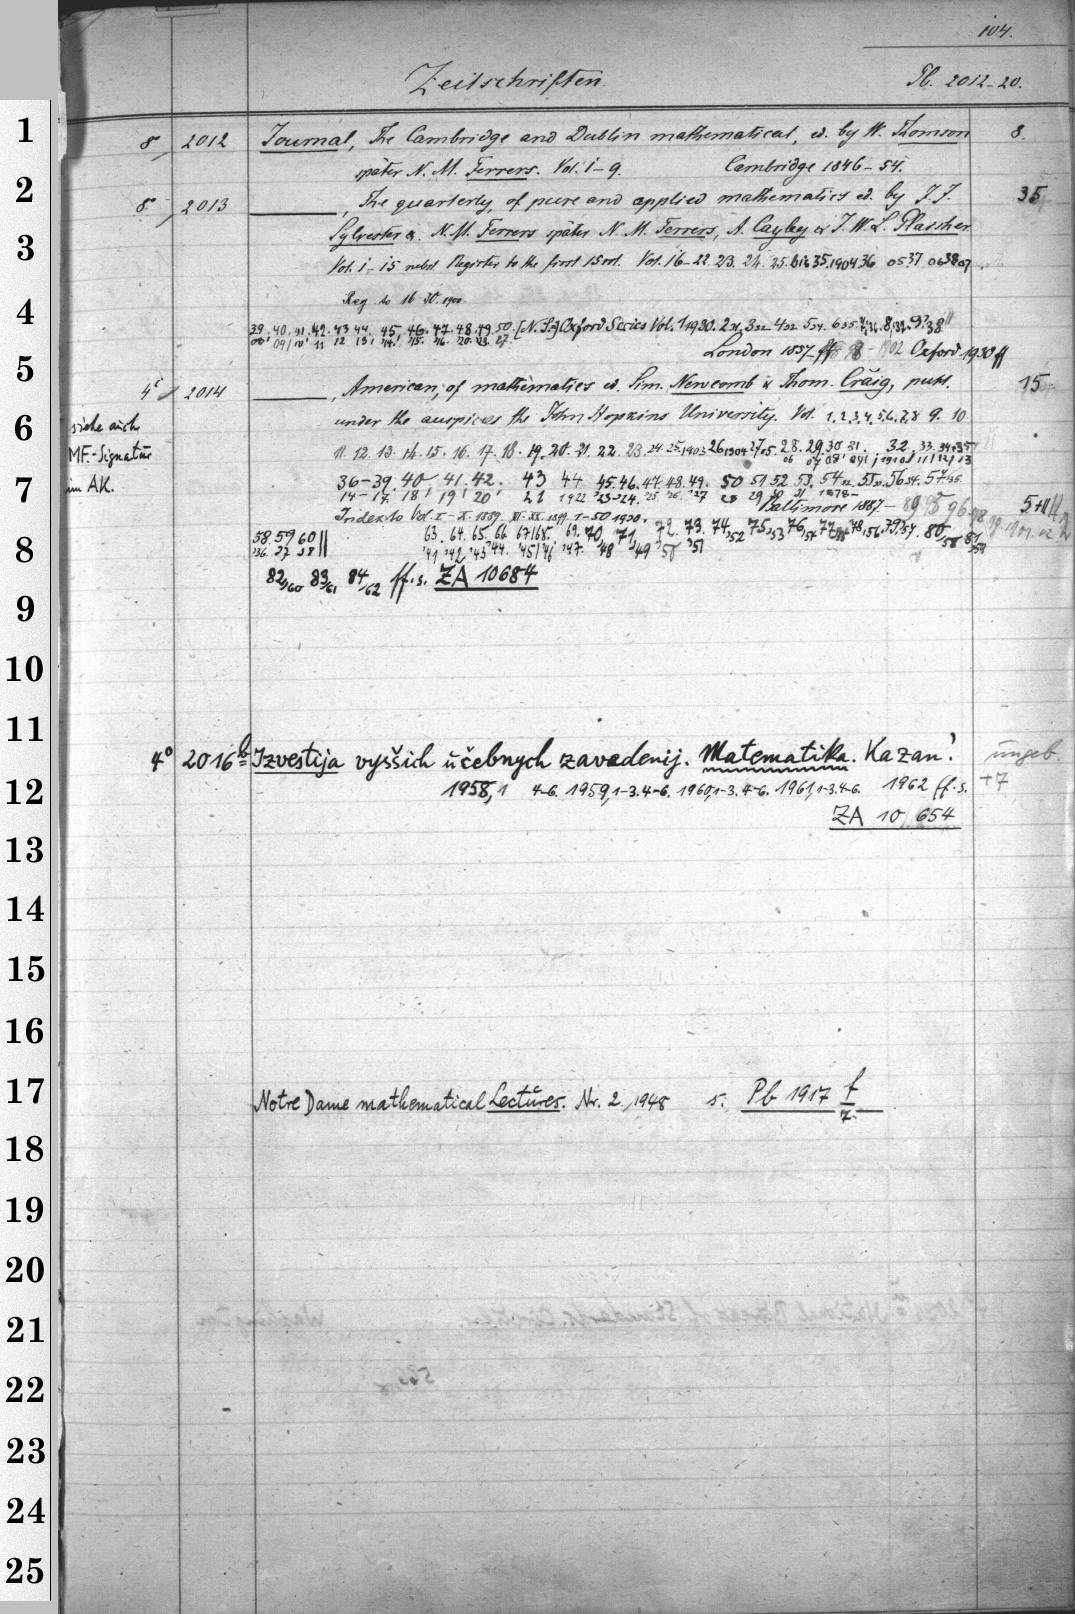 104.
Zeitschriften. Pb. 2012-20.
8° 2012 Journal, The Cambridge and Dublin mathematical, ed. by W. Thomson 8.
später N. M. Ferrers. Vol. 1-9. Cambridge 1846-54.
8° 2013 ———, The quarterly, of pure and applied mathematics ed. by J. J. 35
Sylvester & N. M. Ferrers später N. M. Ferrers, A. Cayley & J. W. L. Glaisher.
Vol. 1-15 nebst Register to the first 15 vol. Vol. 16-22. 23. 24. 25. bis 35. 1904 36 05 37 06 38 07.
Reg. to 16-30. 1900
39. 40. 41. 42. 43 44. 45. 46. 47. 48. 49. 50. [N. S.] Oxford Series Vol. 1 1930. 2 31, 3 32 4 33 5 34. 6 35. 7, 36. 8, 37. 9, 38 ||
08' 09/ 10' 11 12 13' '14' '15. '16. '20. '23. 27.
London 1857 Oxford 1930 ff
4° 2014 ———, American, of mathematics ed. Sim. Newcomb & Thom. Craig, publ. 15
under the auspices the John Hopkins University. Vol. 1. 2. 3. 4. 5. 6. 7. 8 9. 10.
siehe auch
MF.-Signatur
im AK.
11. 12. 13. 14. 15. 16. 17. 18. 19. 20. 21. 22. 23. 24. 25. 1903 26 1904 27 05. 28. 29. 30 31. 32. 33. 34. 35
06 07 08' 09/ 1910/ 11/ 12/ 13
36-39. 40 41. 42. 43 44 45. 46. 47. 48. 49. 50 51 52. 53. 54 32. 55 33. 56 34. 57 35.
14-17. 18' 19' 20' 21 1922 '23-24. '25 '26. '27 28 29 30 31 1878-
Index to Vol. I-X. 1889. XI-XX. 1899. 1-50 1930. Baltimore 1887.- 89 95 96 5+11
58 59 60 || 63. 64. 65. 66 67/68. 69. 70, 71, 72. 73. 74, 52 75, 53 76, 54 77, 55 78, 56 79, 57. 80, 58 81, 59
'36. 37 38 '41 '42 '43 '44. '45/'46 '47. '48 '49 '50 '51
82/60 83/61 84/62 ff. s. ZA 10684
4° 2016 b Izvestija vysšich učebnych zavedenij. Matematika. Kazan'. ungeb.
1958, 1 4-6. 1959, 1-3. 4-6. 1960, 1-3. 4-6. 1961, 1-3. 4-6. 1962 ff. s. +7
ZA 10 654
Notre Dame mathematical Lectures. Nr. 2, 1948 s. Pb 1917 f/2